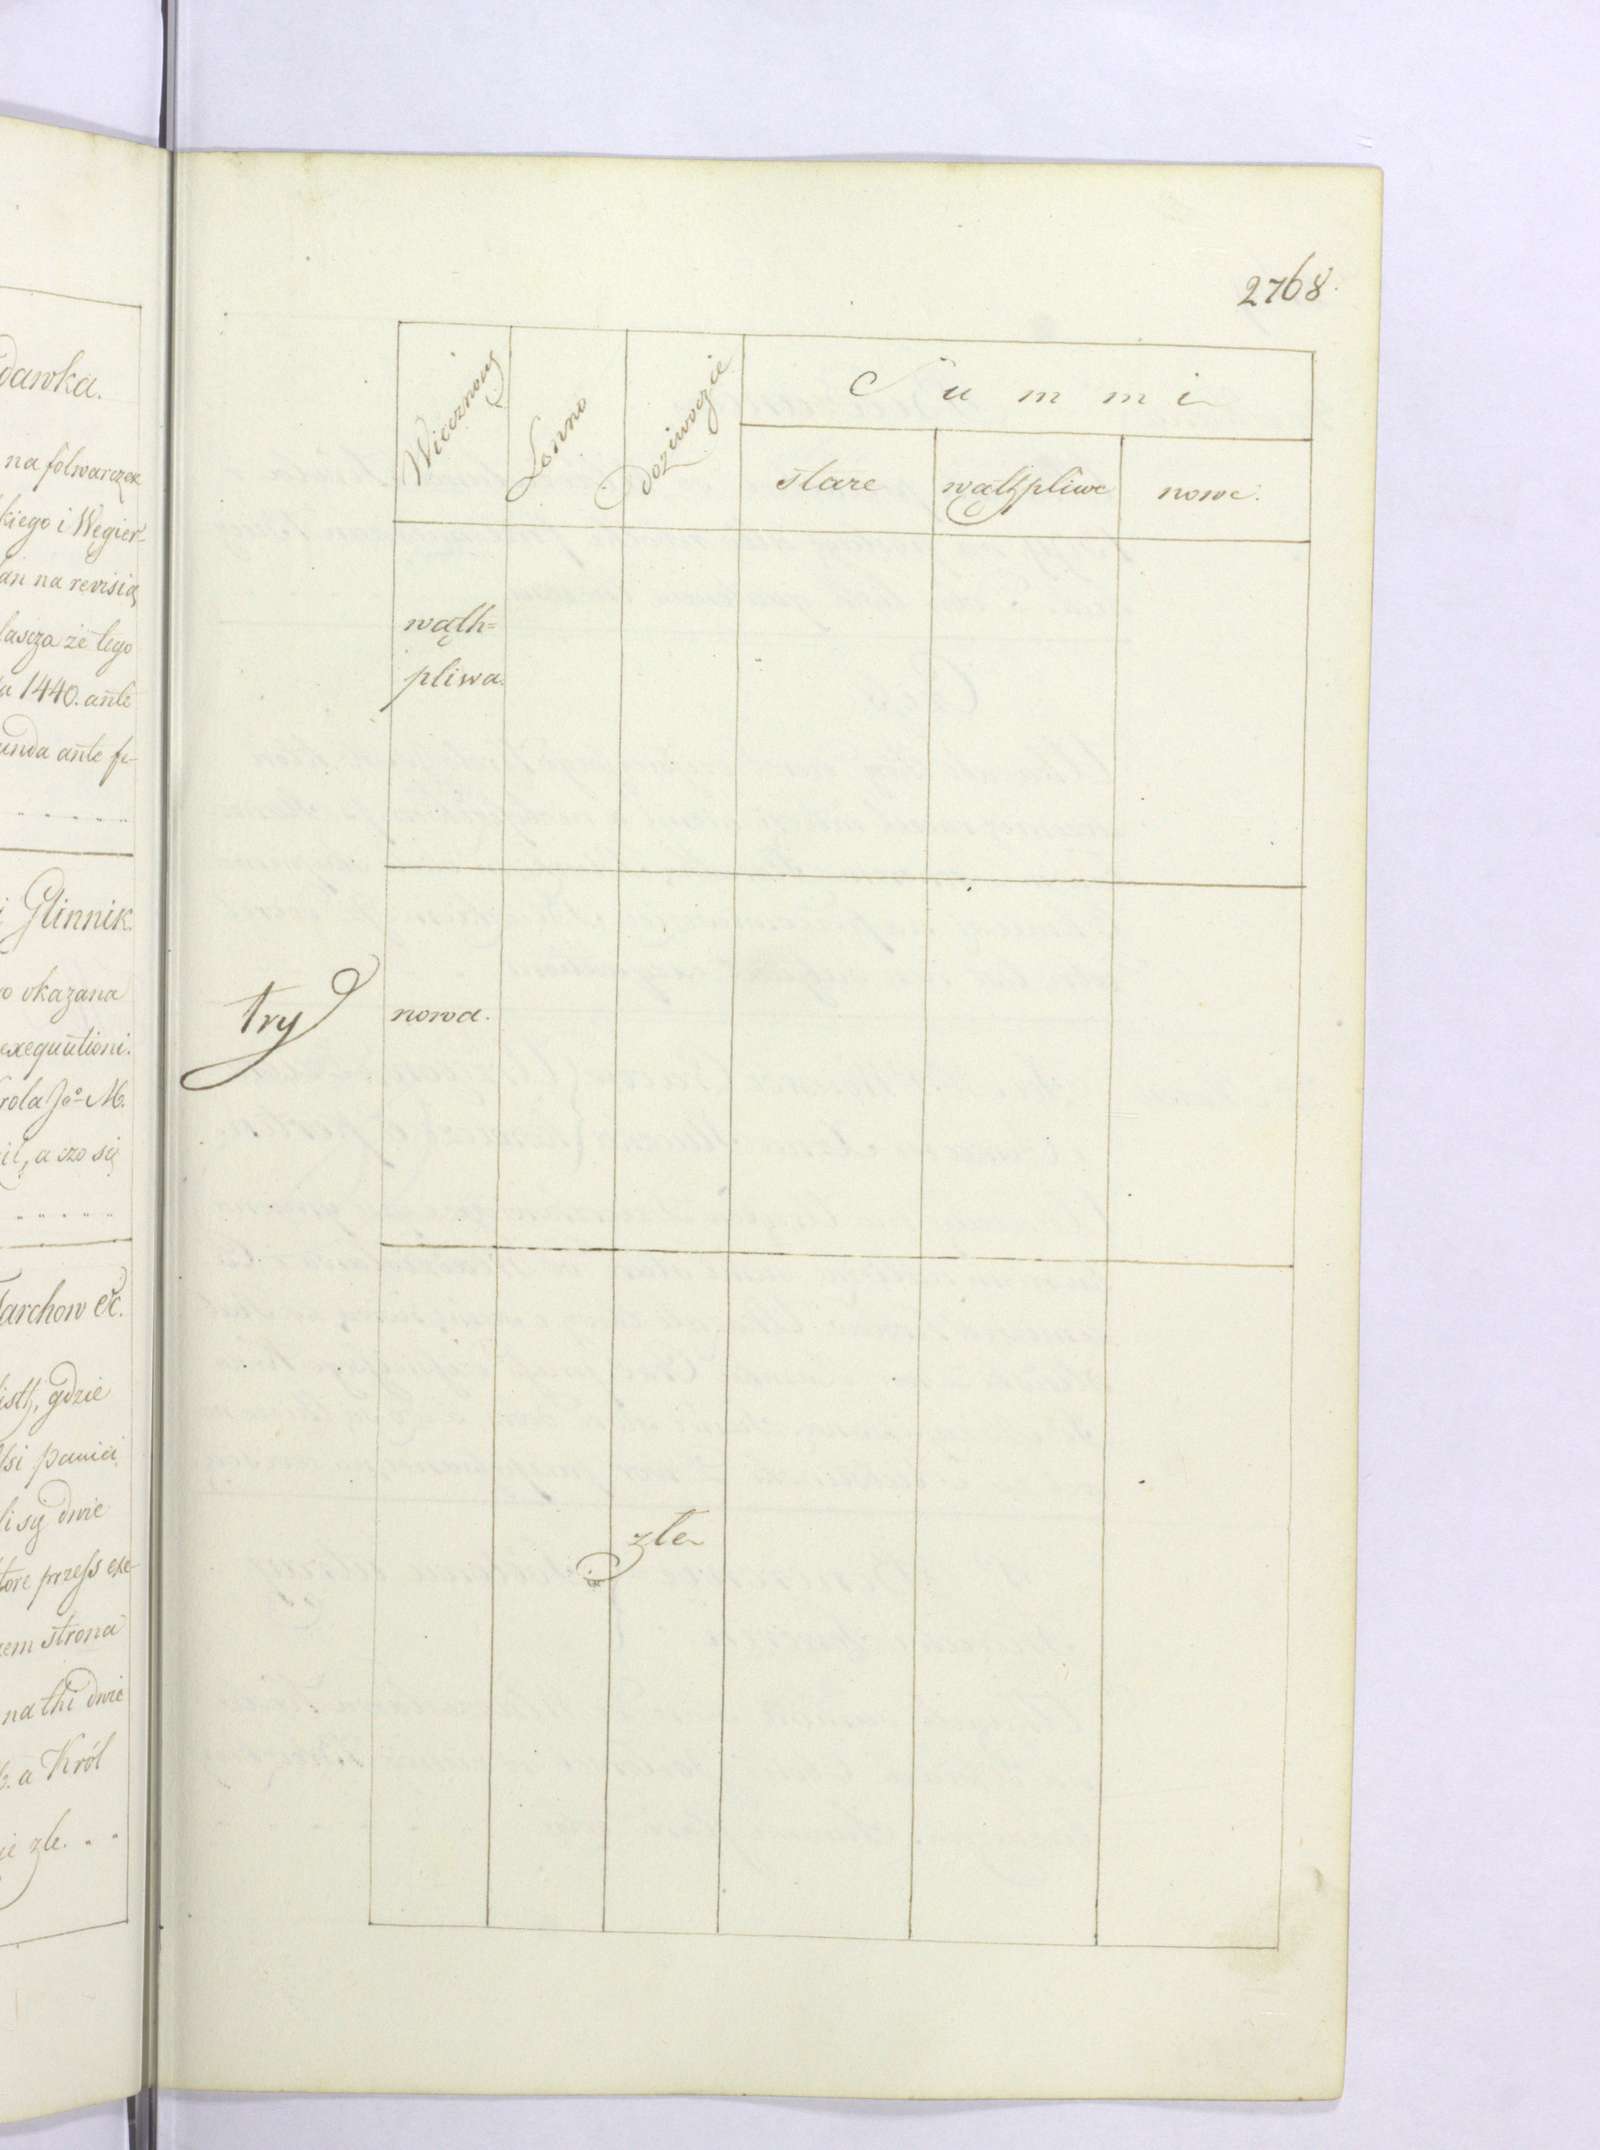 dawka.
na folwarczek
kiego i Węgier-
an na revisią
lascza że tego
a 1440. ante
unda ante fe-
i Glinnik.
o okazana
exequutioni.
rola Jo M.
ił, a czo się
Tarchow etc.
listh, gdzie
lsi panici
li są dwie
tore przess exe-
em strona
na thi dwie
a Król
ie złe. . .
2768.
Wiecznoscz
Lenno
Dożiwoczie
Summi
stare
wąthpliwe
nowe.
wąth=
pliwa.
try
nowa.
złe